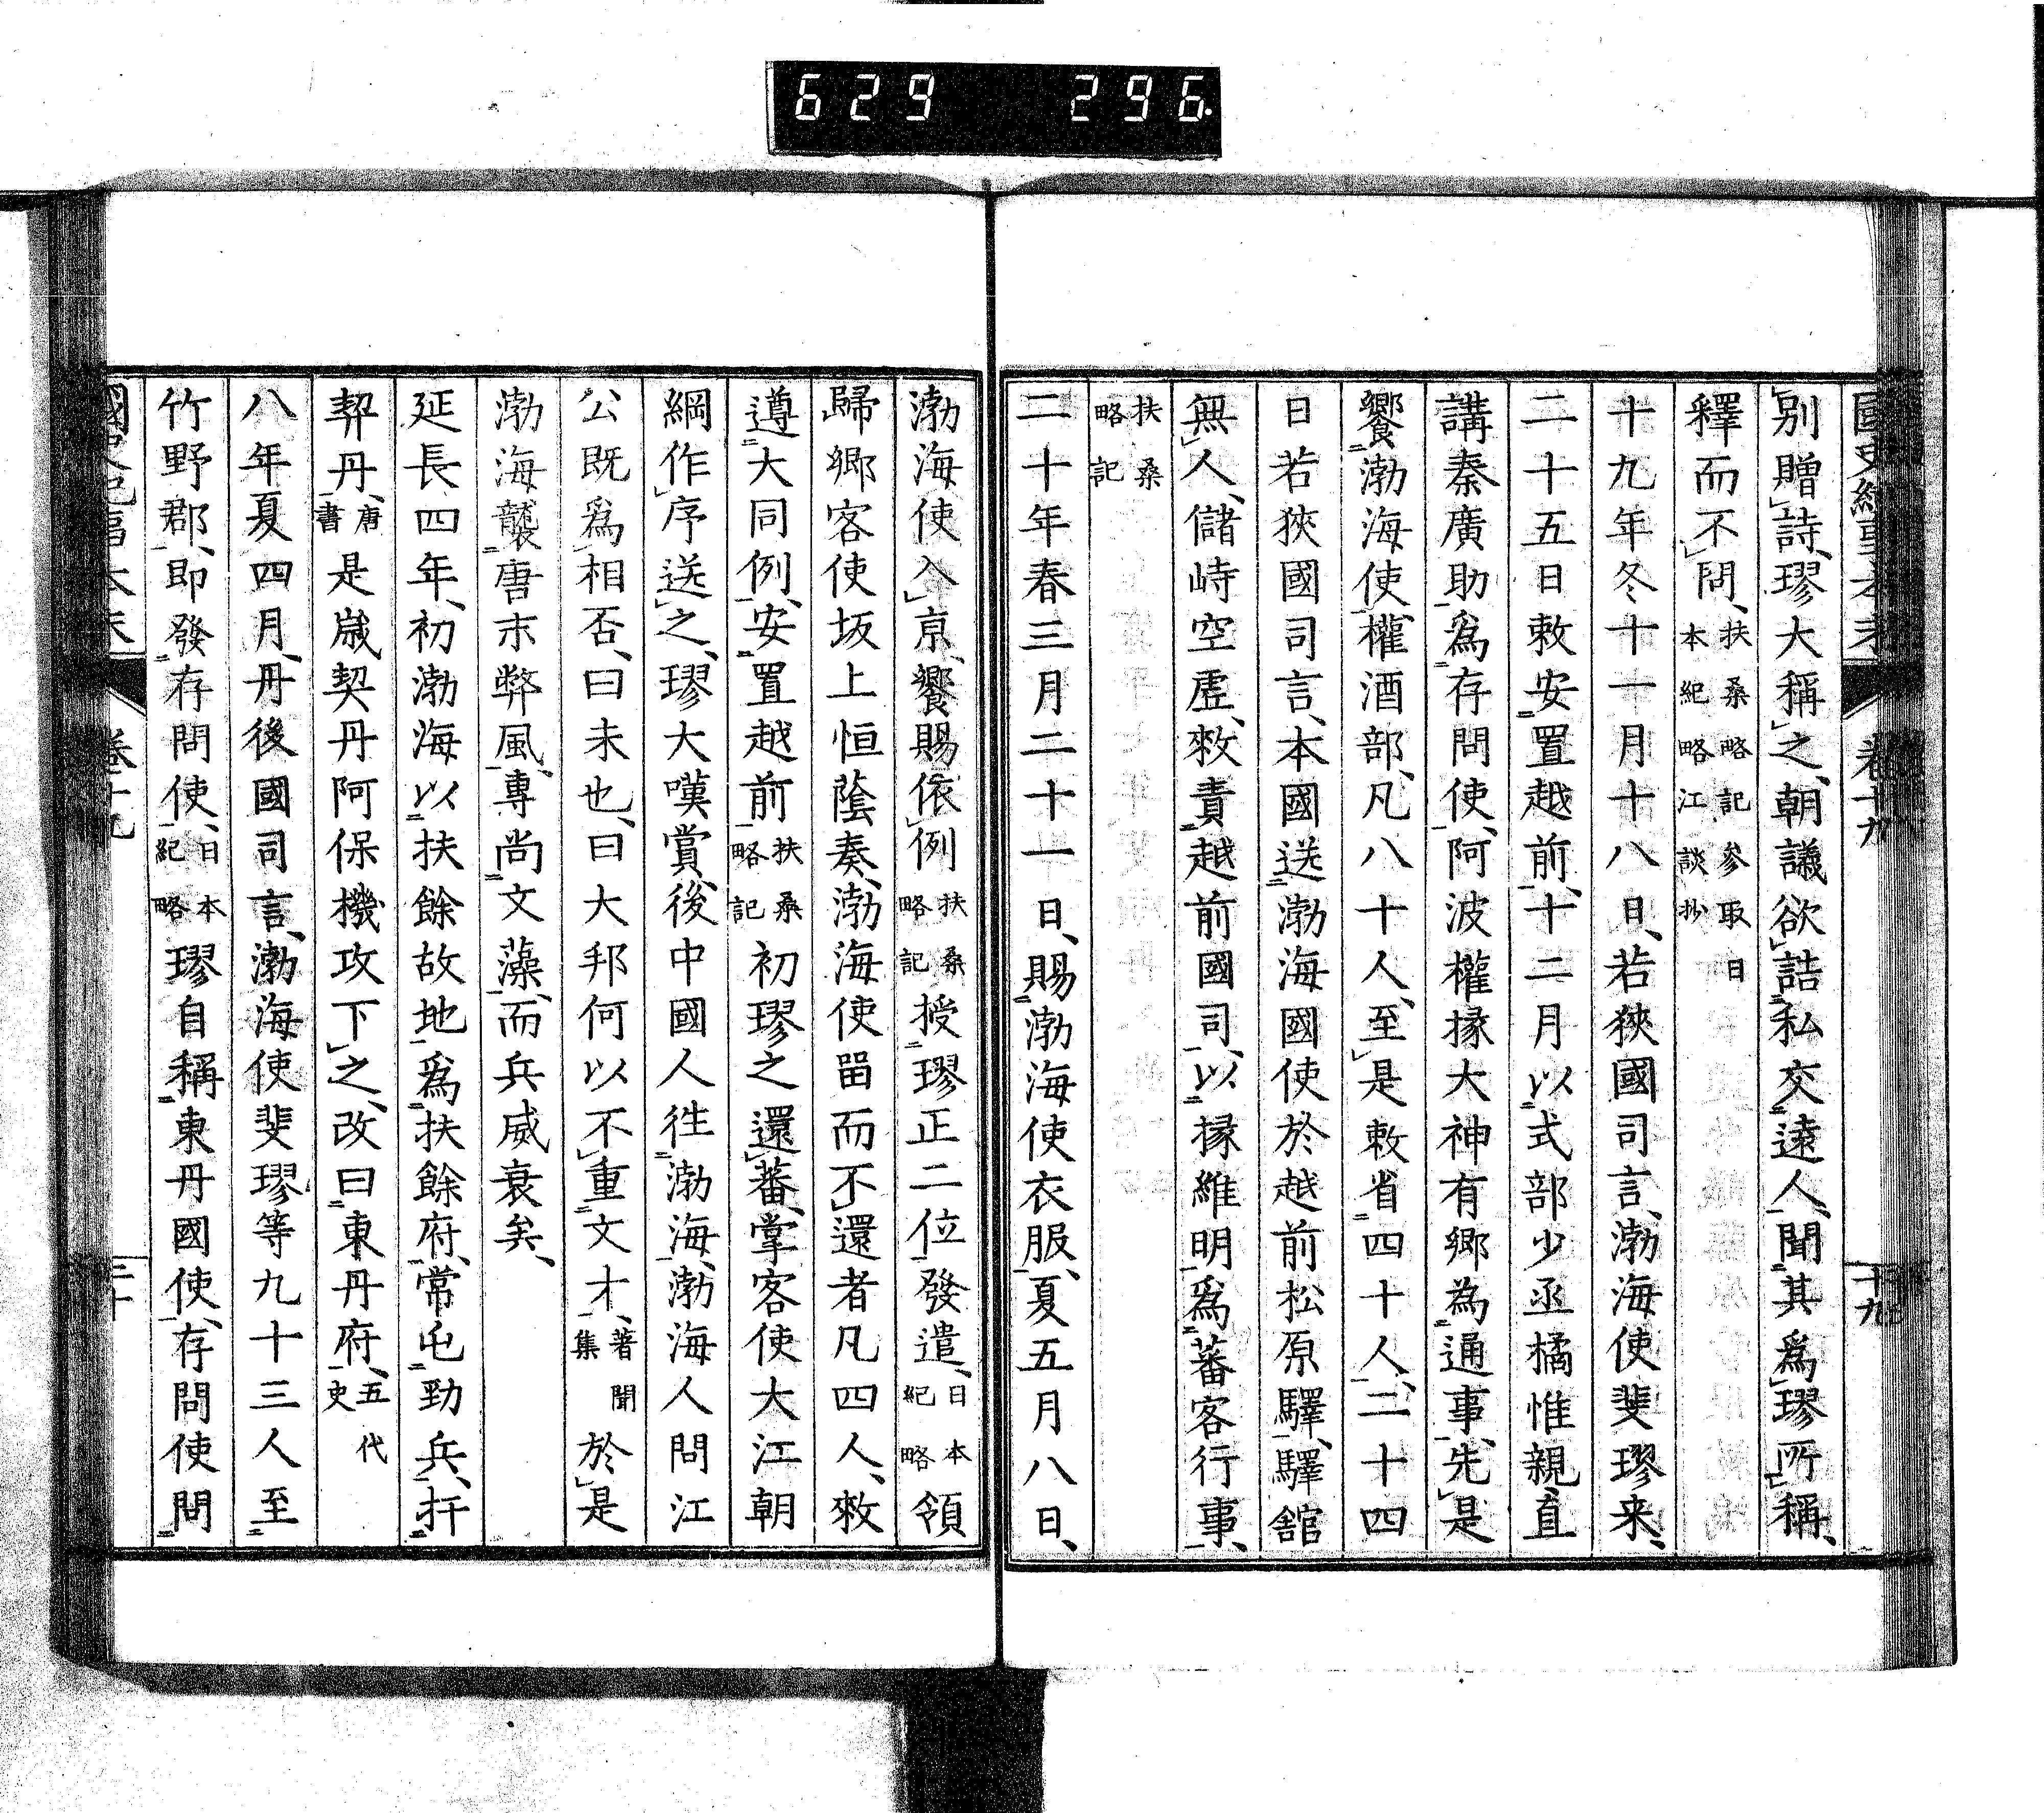 629 296.
國史紀事本末 卷十九 二十九
別贈詩、璆大稱之、朝議欲詰私交遠人、聞其爲璆所稱、
釋而不問、扶桑略記參取日本紀略江談抄
十九年冬十一月十八日、若狹國司言、渤海使斐璆来、
二十五日敕安置越前、十二月以式部少丞橘惟親、直
講秦廣助、爲存問使、阿波權掾大神有鄉為通事、先是
饗渤海使、權酒部、凡八十人、至是敕省四十人、二十四
日若狹國司言、本國送渤海國使於越前松原驛、驛舘
無人、儲峙空虛、敕責越前國司、以掾維明、爲蕃客行事、
扶桑略記
二十年春三月二十一日、賜渤海使衣服、夏五月八日、
渤海使入京、饗賜依例扶桑略記授璆正二位、發遣、日本紀略領
歸鄉客使坂上恒蔭奏、渤海使留而不還者凡四人、敕
遵大同例、安置越前扶桑略記初璆之還蕃、掌客使大江朝
綱作序送之、璆大嘆賞、後中國人徃渤海、渤海人問江
公既爲相否、曰未也、曰大邦何以不重文才、著聞集於是
渤海襲唐末弊風、專尚文藻、而兵威衰矣、
延長四年、初渤海以扶餘故地、爲扶餘府、常屯勁兵、扞
契丹、唐書是歲契丹阿保機攻下之、改曰東丹府、五代史
八年夏四月、丹後國司言、渤海使斐璆等九十三人至
竹野郡、即發存問使、日本紀略璆自稱東丹國使、存問使問
國史紀事本末 卷十九 三十